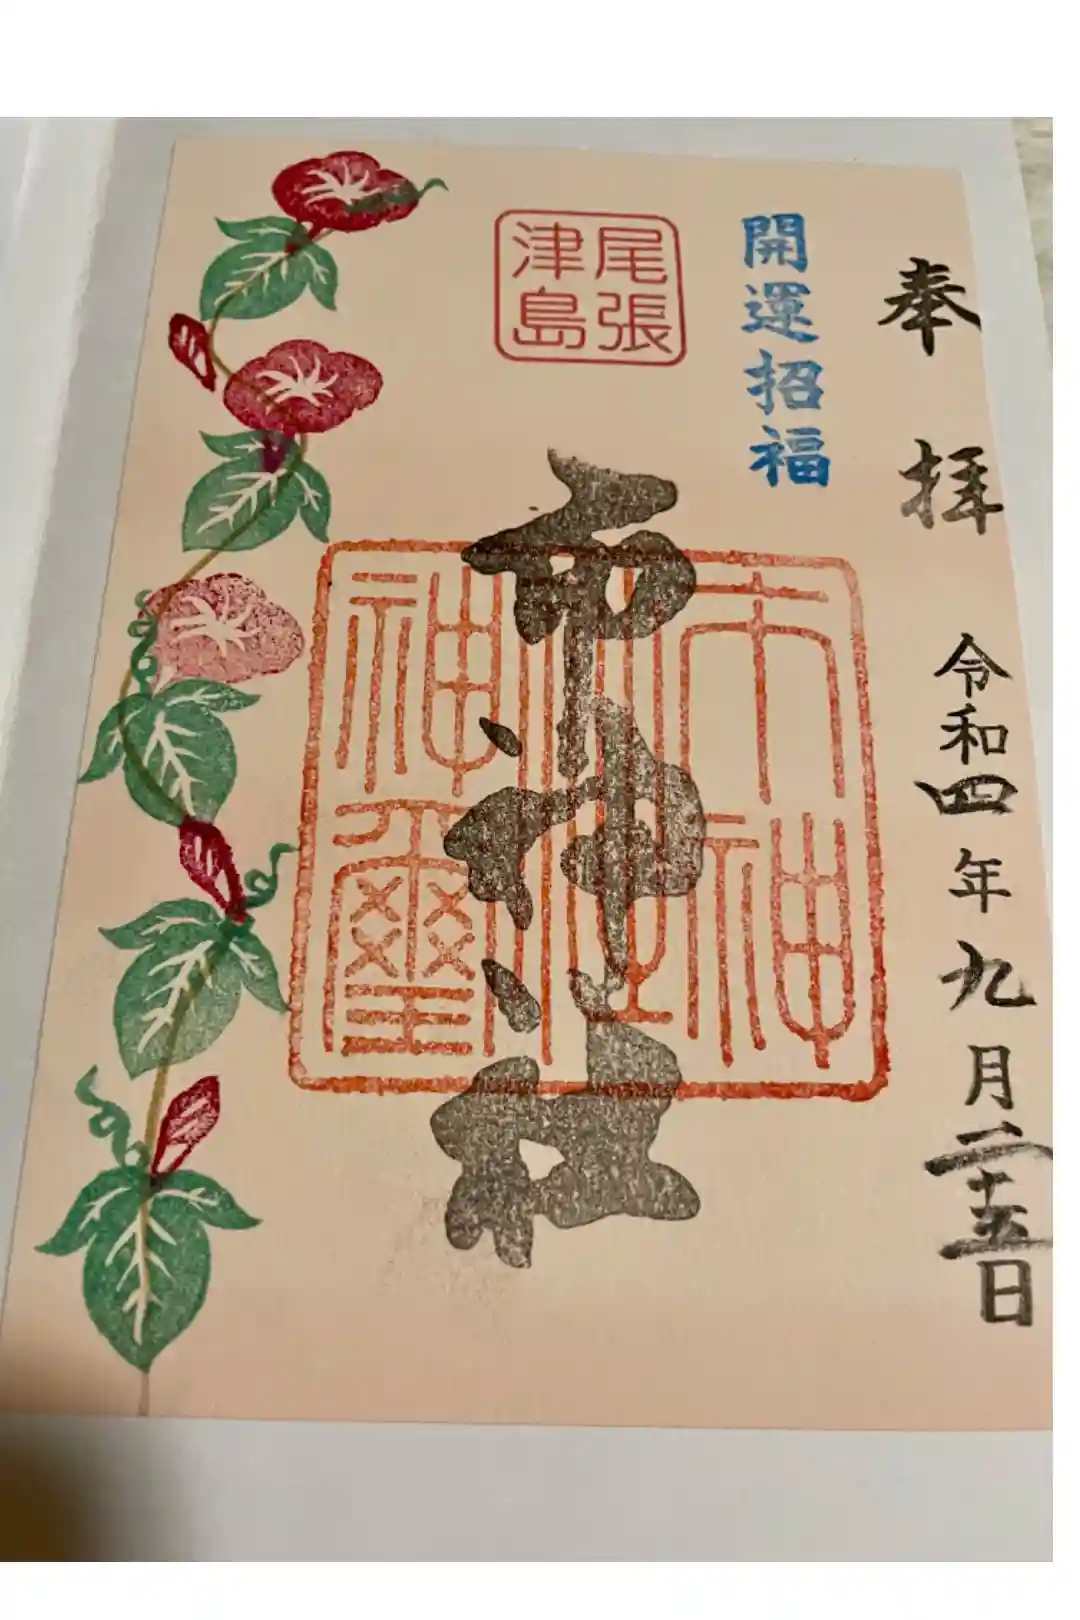 奉拝
令和四年九月二十五日
開運招福
尾張
津島
市神社
市神
社
神璽